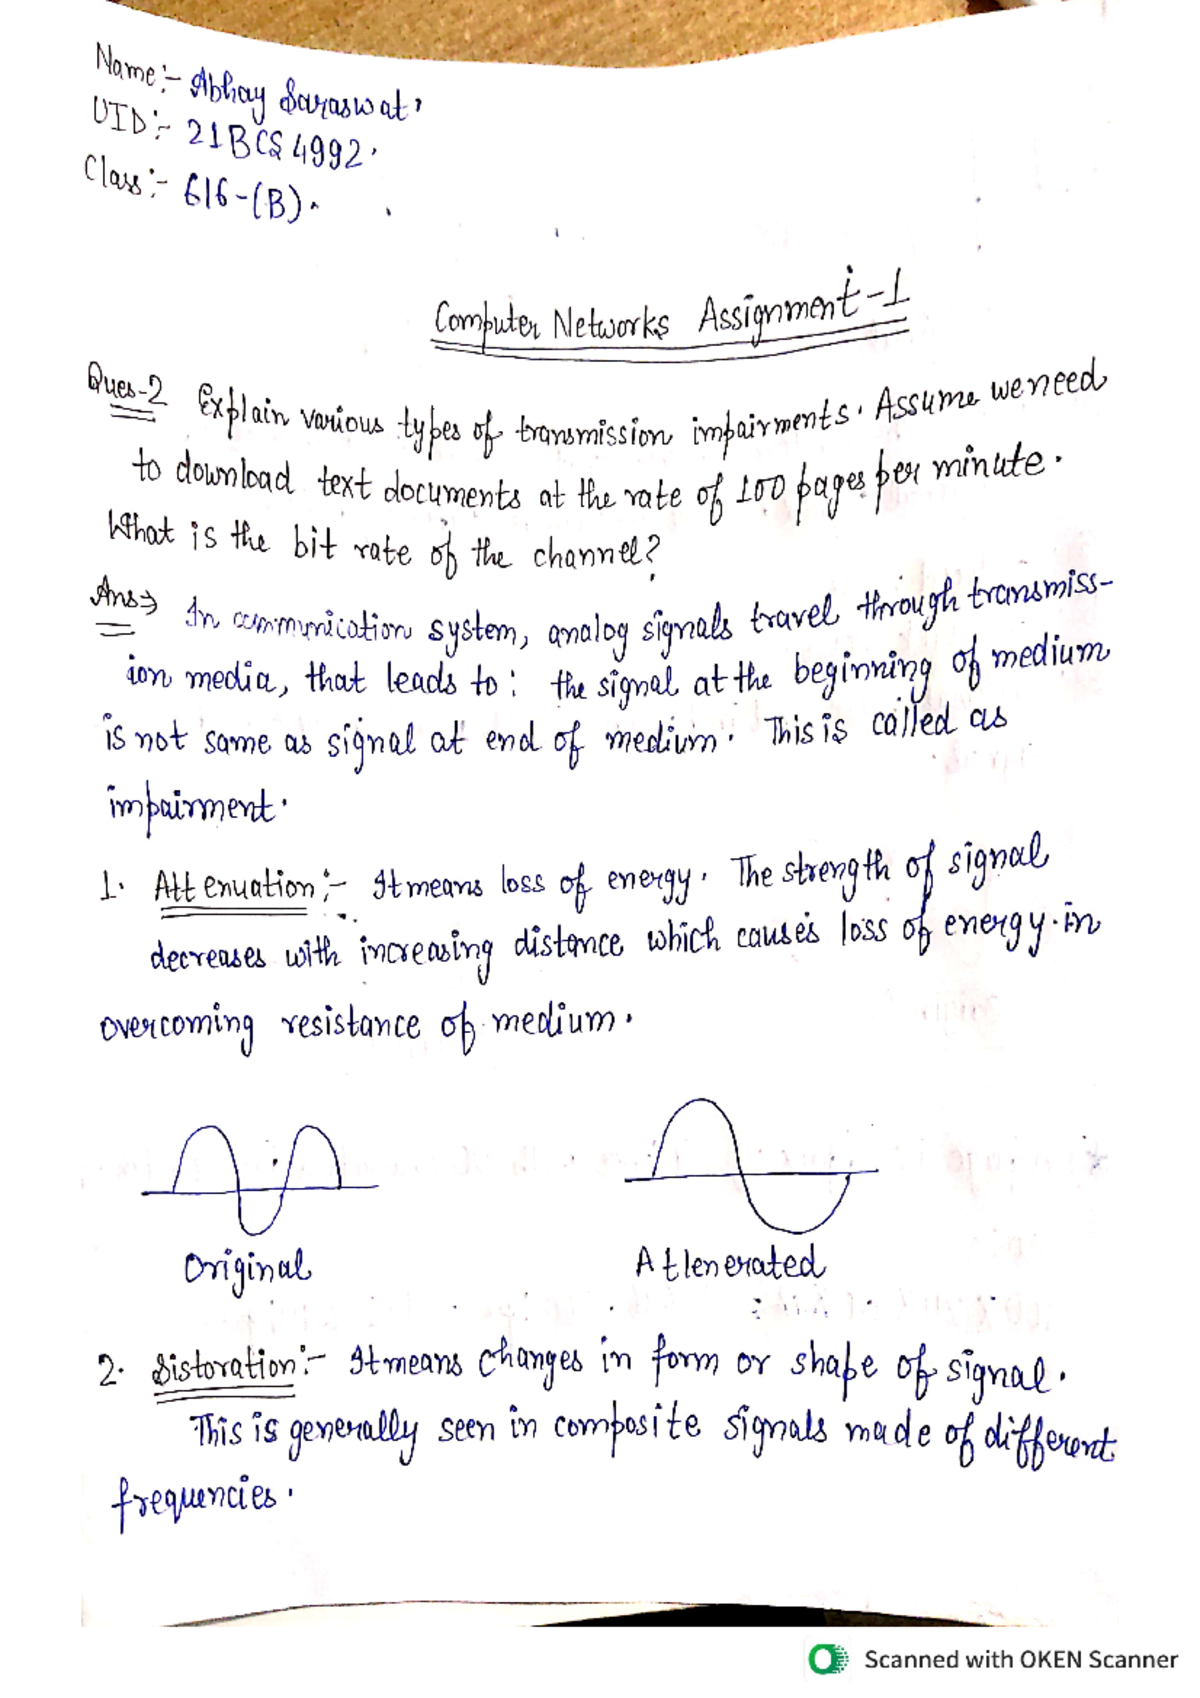 Name:- Abhay Saraswat.
UID:- 21BCS4992.
Class:- 616-(B).
Computer Networks Assignment-1
Ques-2 Explain various types of transmission impairments. Assume we need
to download text documents at the rate of 100 pages per minute.
What is the bit rate of the channel?
Ans⇒ In communication system, analog signals travel through transmiss-
ion media, that leads to: the signal at the beginning of medium
is not same as signal at end of medium. This is called as
impairment.
1. Attenuation:- It means loss of energy. The strength of signal
decreases with increasing distance which causes loss of energy in
overcoming resistance of medium.
Original
Attenerated
2. Distoration:- It means changes in form or shape of signal.
This is generally seen in composite signals made of different
frequencies.
Scanned with OKEN Scanner